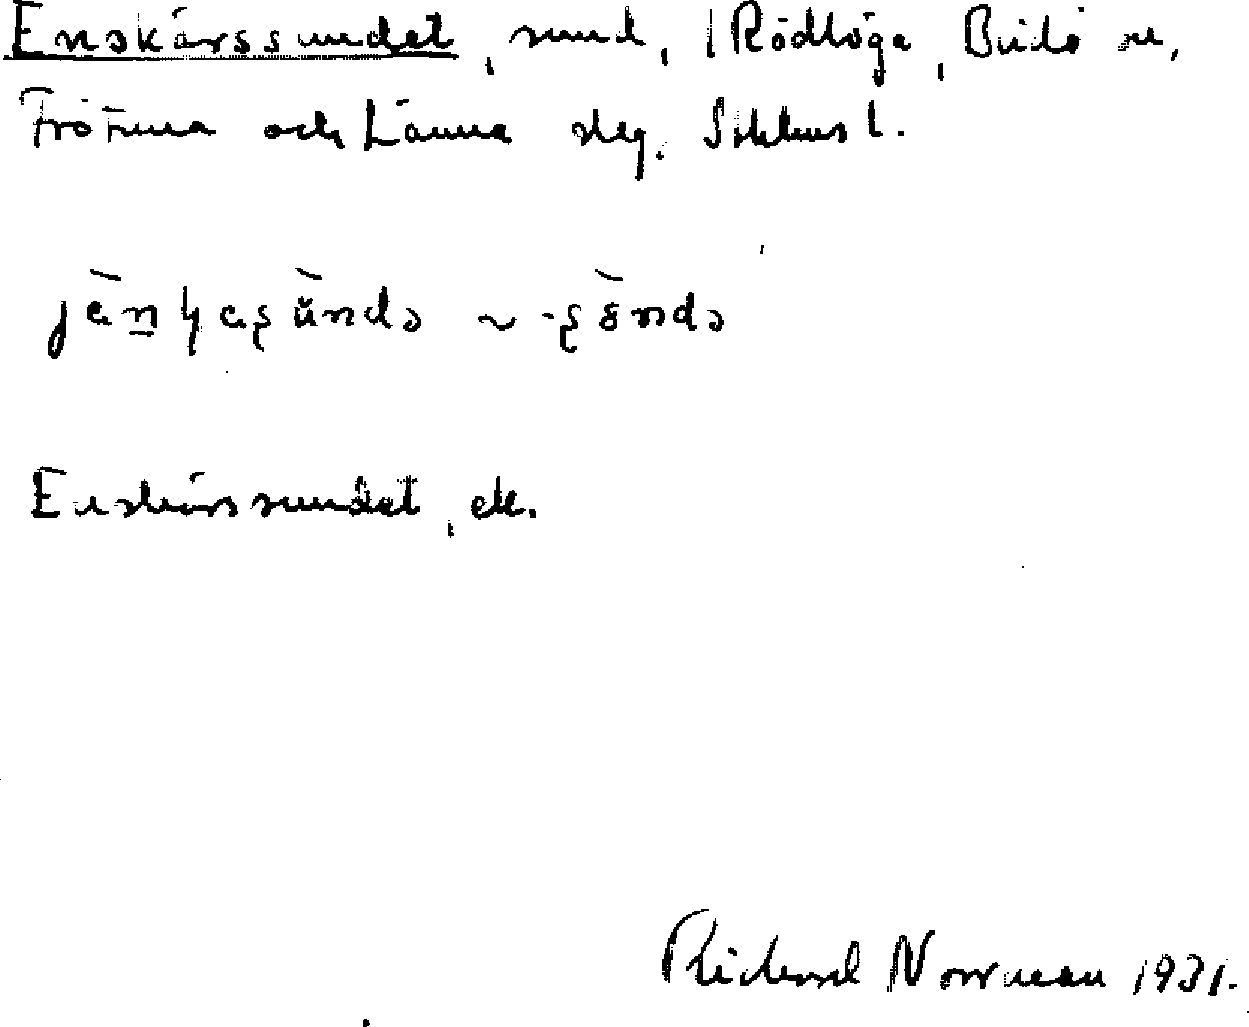 Enskärssundet, sund, i Rödlöga, Blidö sn,
Frötuna och Länna slg. Sthlms l.
Enskärssundet, ek.
Richard Norrman 1931.